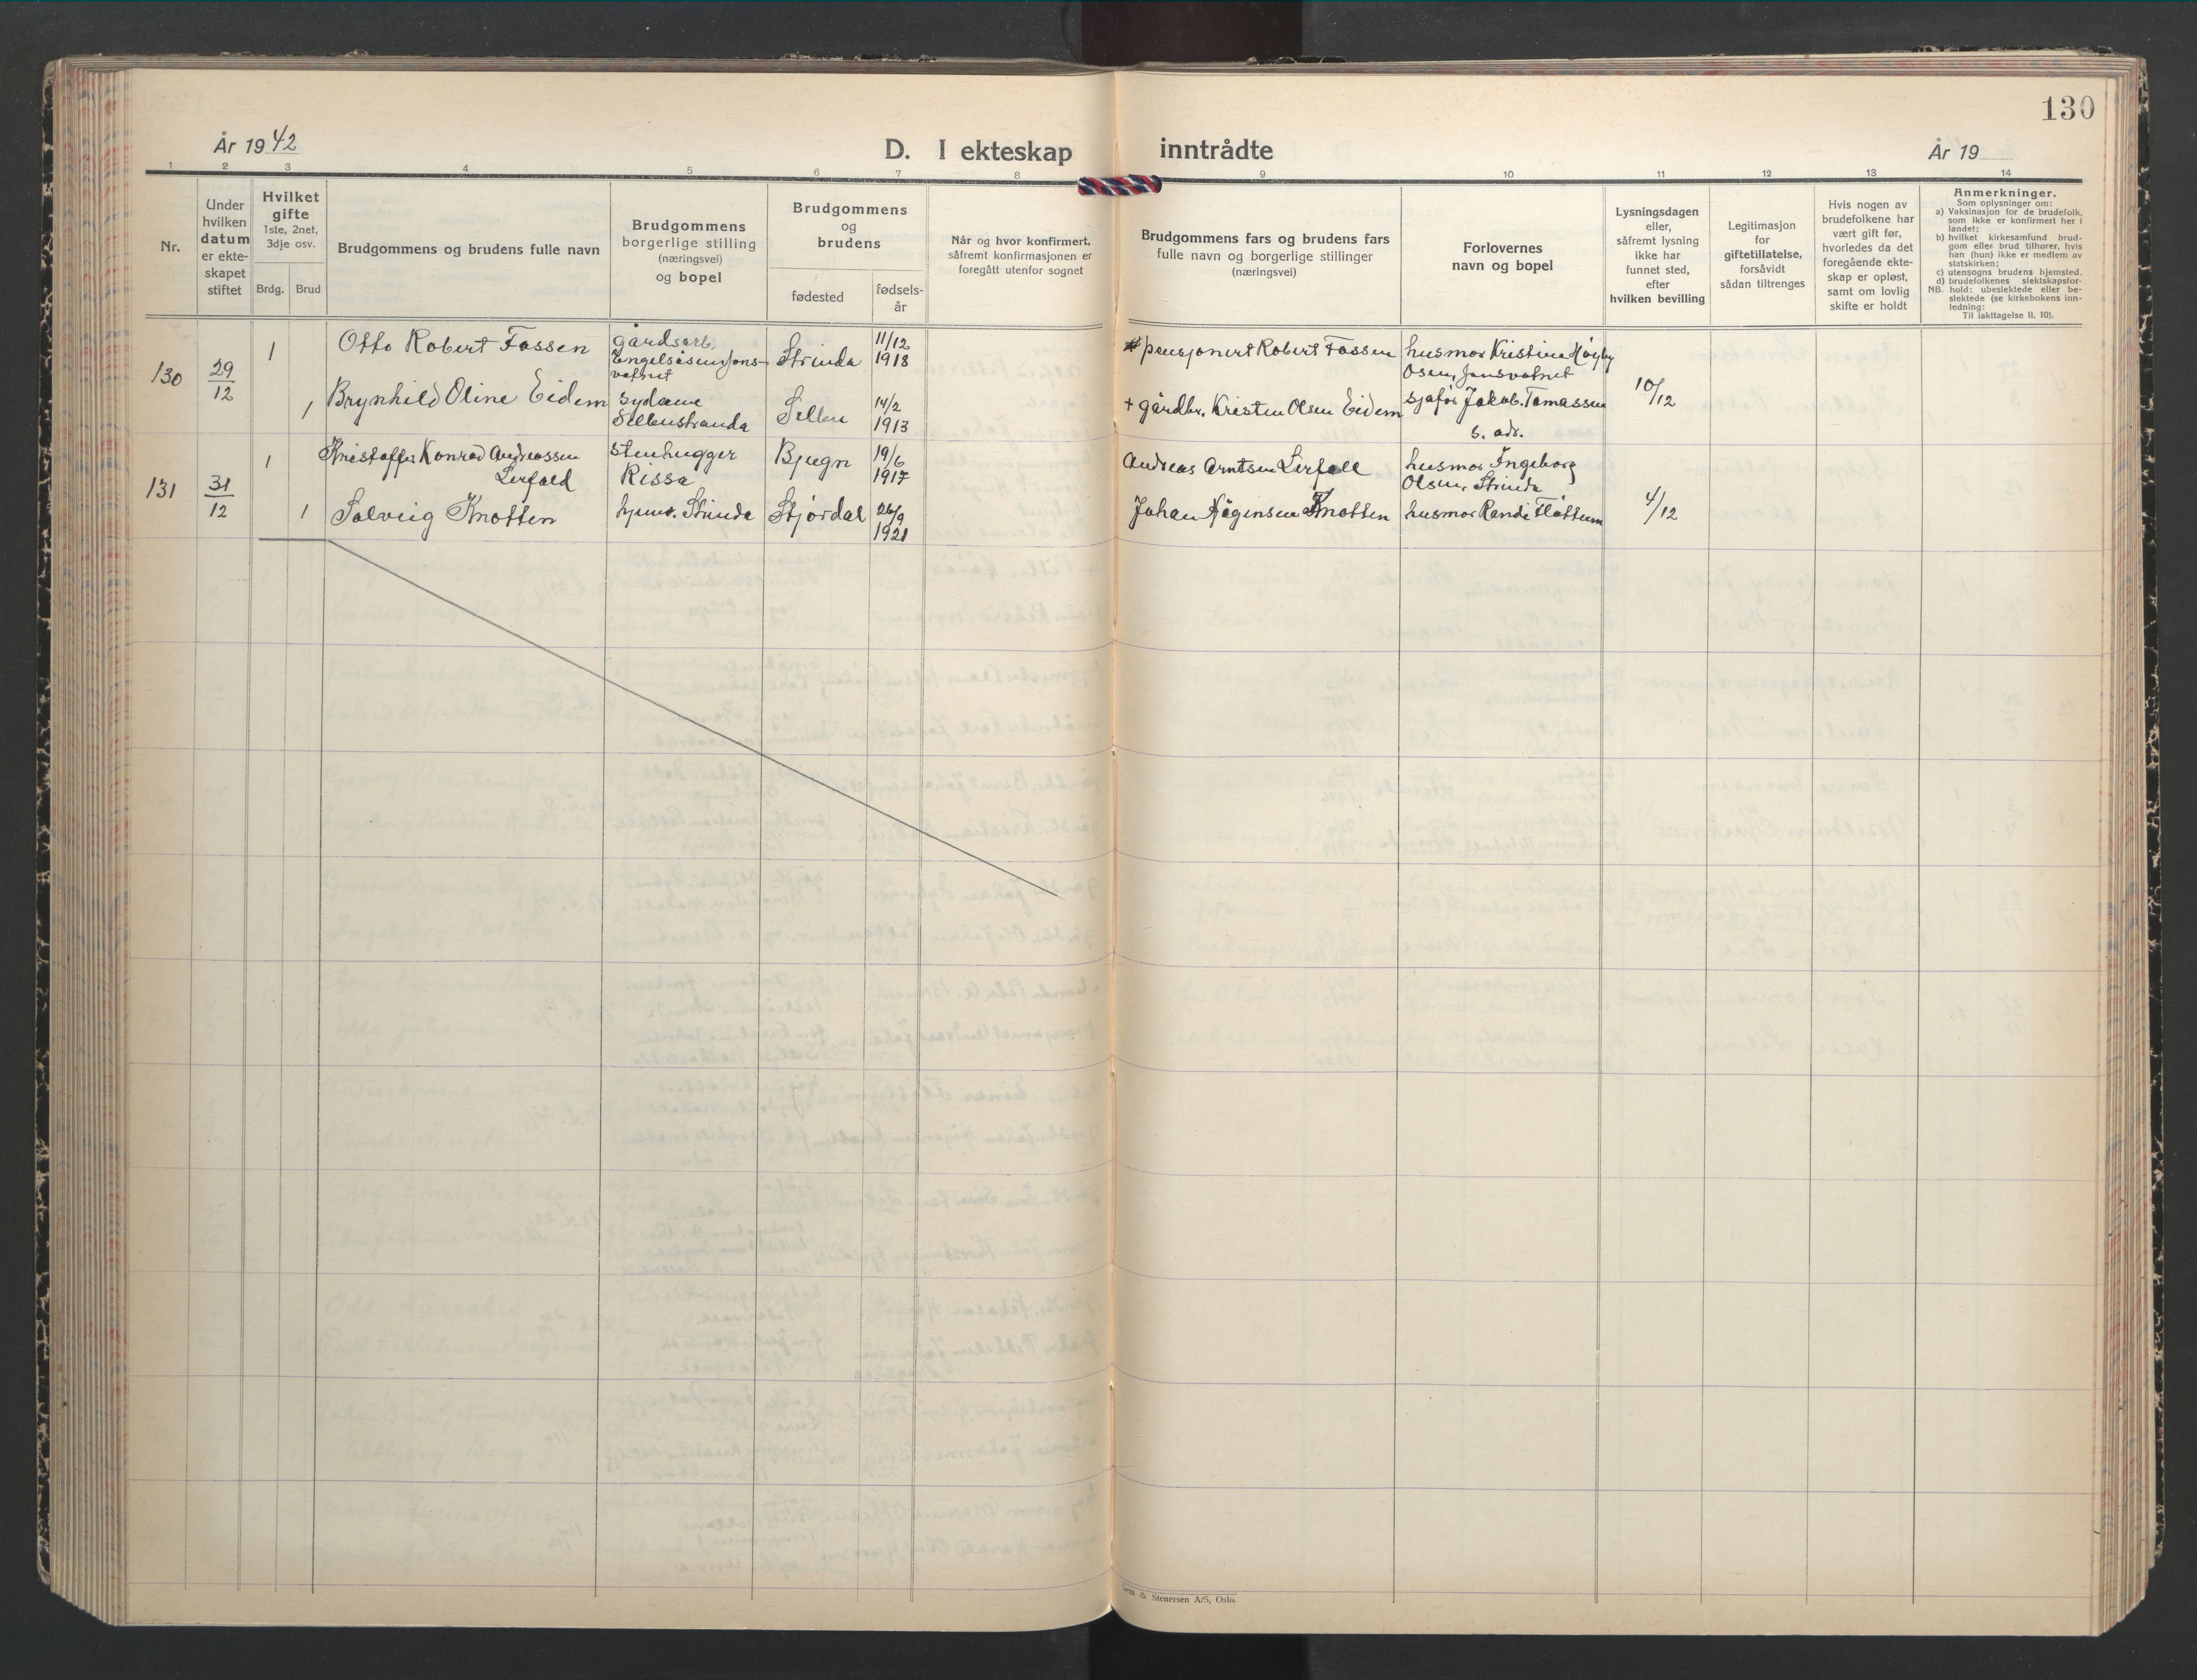 130
År 1942
D. I ekteskap inntrådte
År 19
1 2 3 4 5 6 7 8 9 10 11 12 13 14
Nr.
Under
hvilken
datum
er ekte-
skapet
stiftet
Hvilket
gifte
1ste, 2net,
3dje osv.
Brdg. Brud
Brudgommens og brudens fulle navn
Brudgommens
borgerlige stilling
(næringsvei)
og bopel
Brudgommens
og
brudens
fødested
fødsels-
år
Når og hvor konfirmert,
såfremt konfirmasjonen er
foregått utenfor sognet
Brudgommens fars og brudens fars
fulle navn og borgerlige stillinger
(næringsvei)
Forlovernes
navn og bopel
Lysningsdagen
eller,
såfremt lysning
ikke har
funnet sted,
efter
hvilken bevilling
Legitimasjon
for
giftetillatelse,
forsåvidt
sådan tiltrenges
Hvis nogen av
brudefolkene har
vært gift før,
hvorledes da det
foregående ekte-
skap er opløst,
samt om lovlig
skifte er holdt
Anmerkninger.
Som oplysninger om:
a) Vaksinasjon for de brudefolk,
som ikke er konfirmert her i
landet;
b) hvilket kirkesamfund brud-
gom eller brud tilhører, hvis
han (hun) ikke er medlem av
statskirken;
c) utensogns brudens hjemsted.
d) brudefolkenes slektskapsfor-
hold: ubeslektede eller be-
slektede (se kirkebokens inn-
ledning:
NB.
Til iakttagelse II. 10).
130
29/12
1
Otto Robert Fossen
gårdsarb.
Engelsåsen, Jons-
vatnet
Strinda
11/12
1918
pensjonert Robert Fossen
husmor Kristine Høyby
Osen, Jonsvatnet
1
Brynhild Oline Eidem
sydame
Selbustranda
Selbu
14/2
1913
+ gårdbr. Kristen Olsen Eidem
sjåfør Jakob Tomassen
s. adr.
10/12
131
31/12
1
Kristoffer Konrad Andreassen
Lerfald
stenhugger
Rissa
Bjugn
19/6
1917
Andreas Arntsen Lerfall
husmor Ingeborg
Olsen, Strinda
1
Solveig Knotten
hjemv. Strinda
Stjørdal
26/9
1921
Johan Hågensen Knotten
husmor Randi Fløttum
4/12
& Stenersen A/S, Oslo.